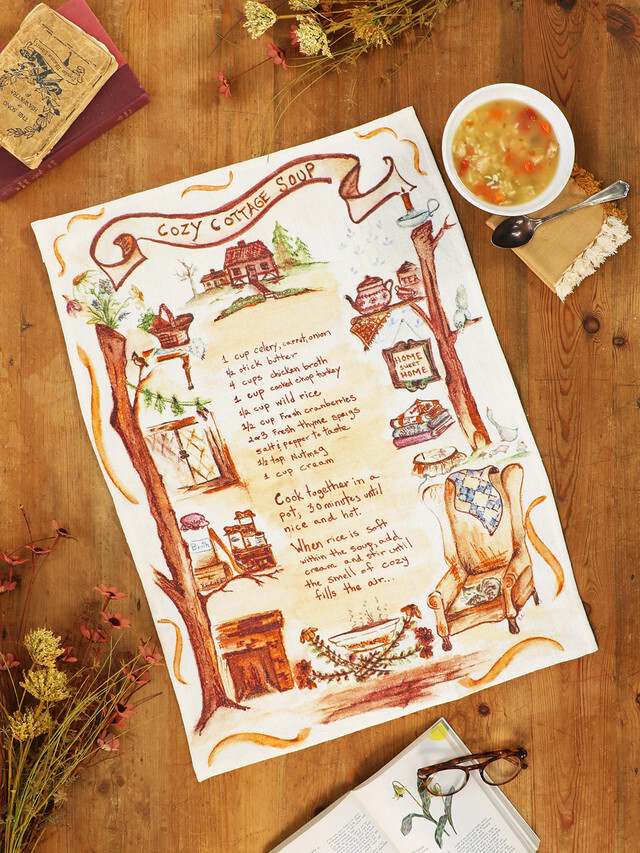 COZY COTTAGE SOUP
1 cup celery, carrot, onion
½ stick butter
4 cups chicken broth
1 cup cooked chop turkey
½ cup wild rice
1/2 cup Fresh cranberries
2 or 3 Fresh thyme sprigs
salt & pepper to taste
½ tsp. Nutmeg
1 cup cream
Cook together in a
pot, 30 minutes until
nice and hot.
When rice is soft
within the soup, add
cream and stir until
the smell of cozy
fills the air...
TEA
HOME
SWEET
HOME
Broth
THE SONG